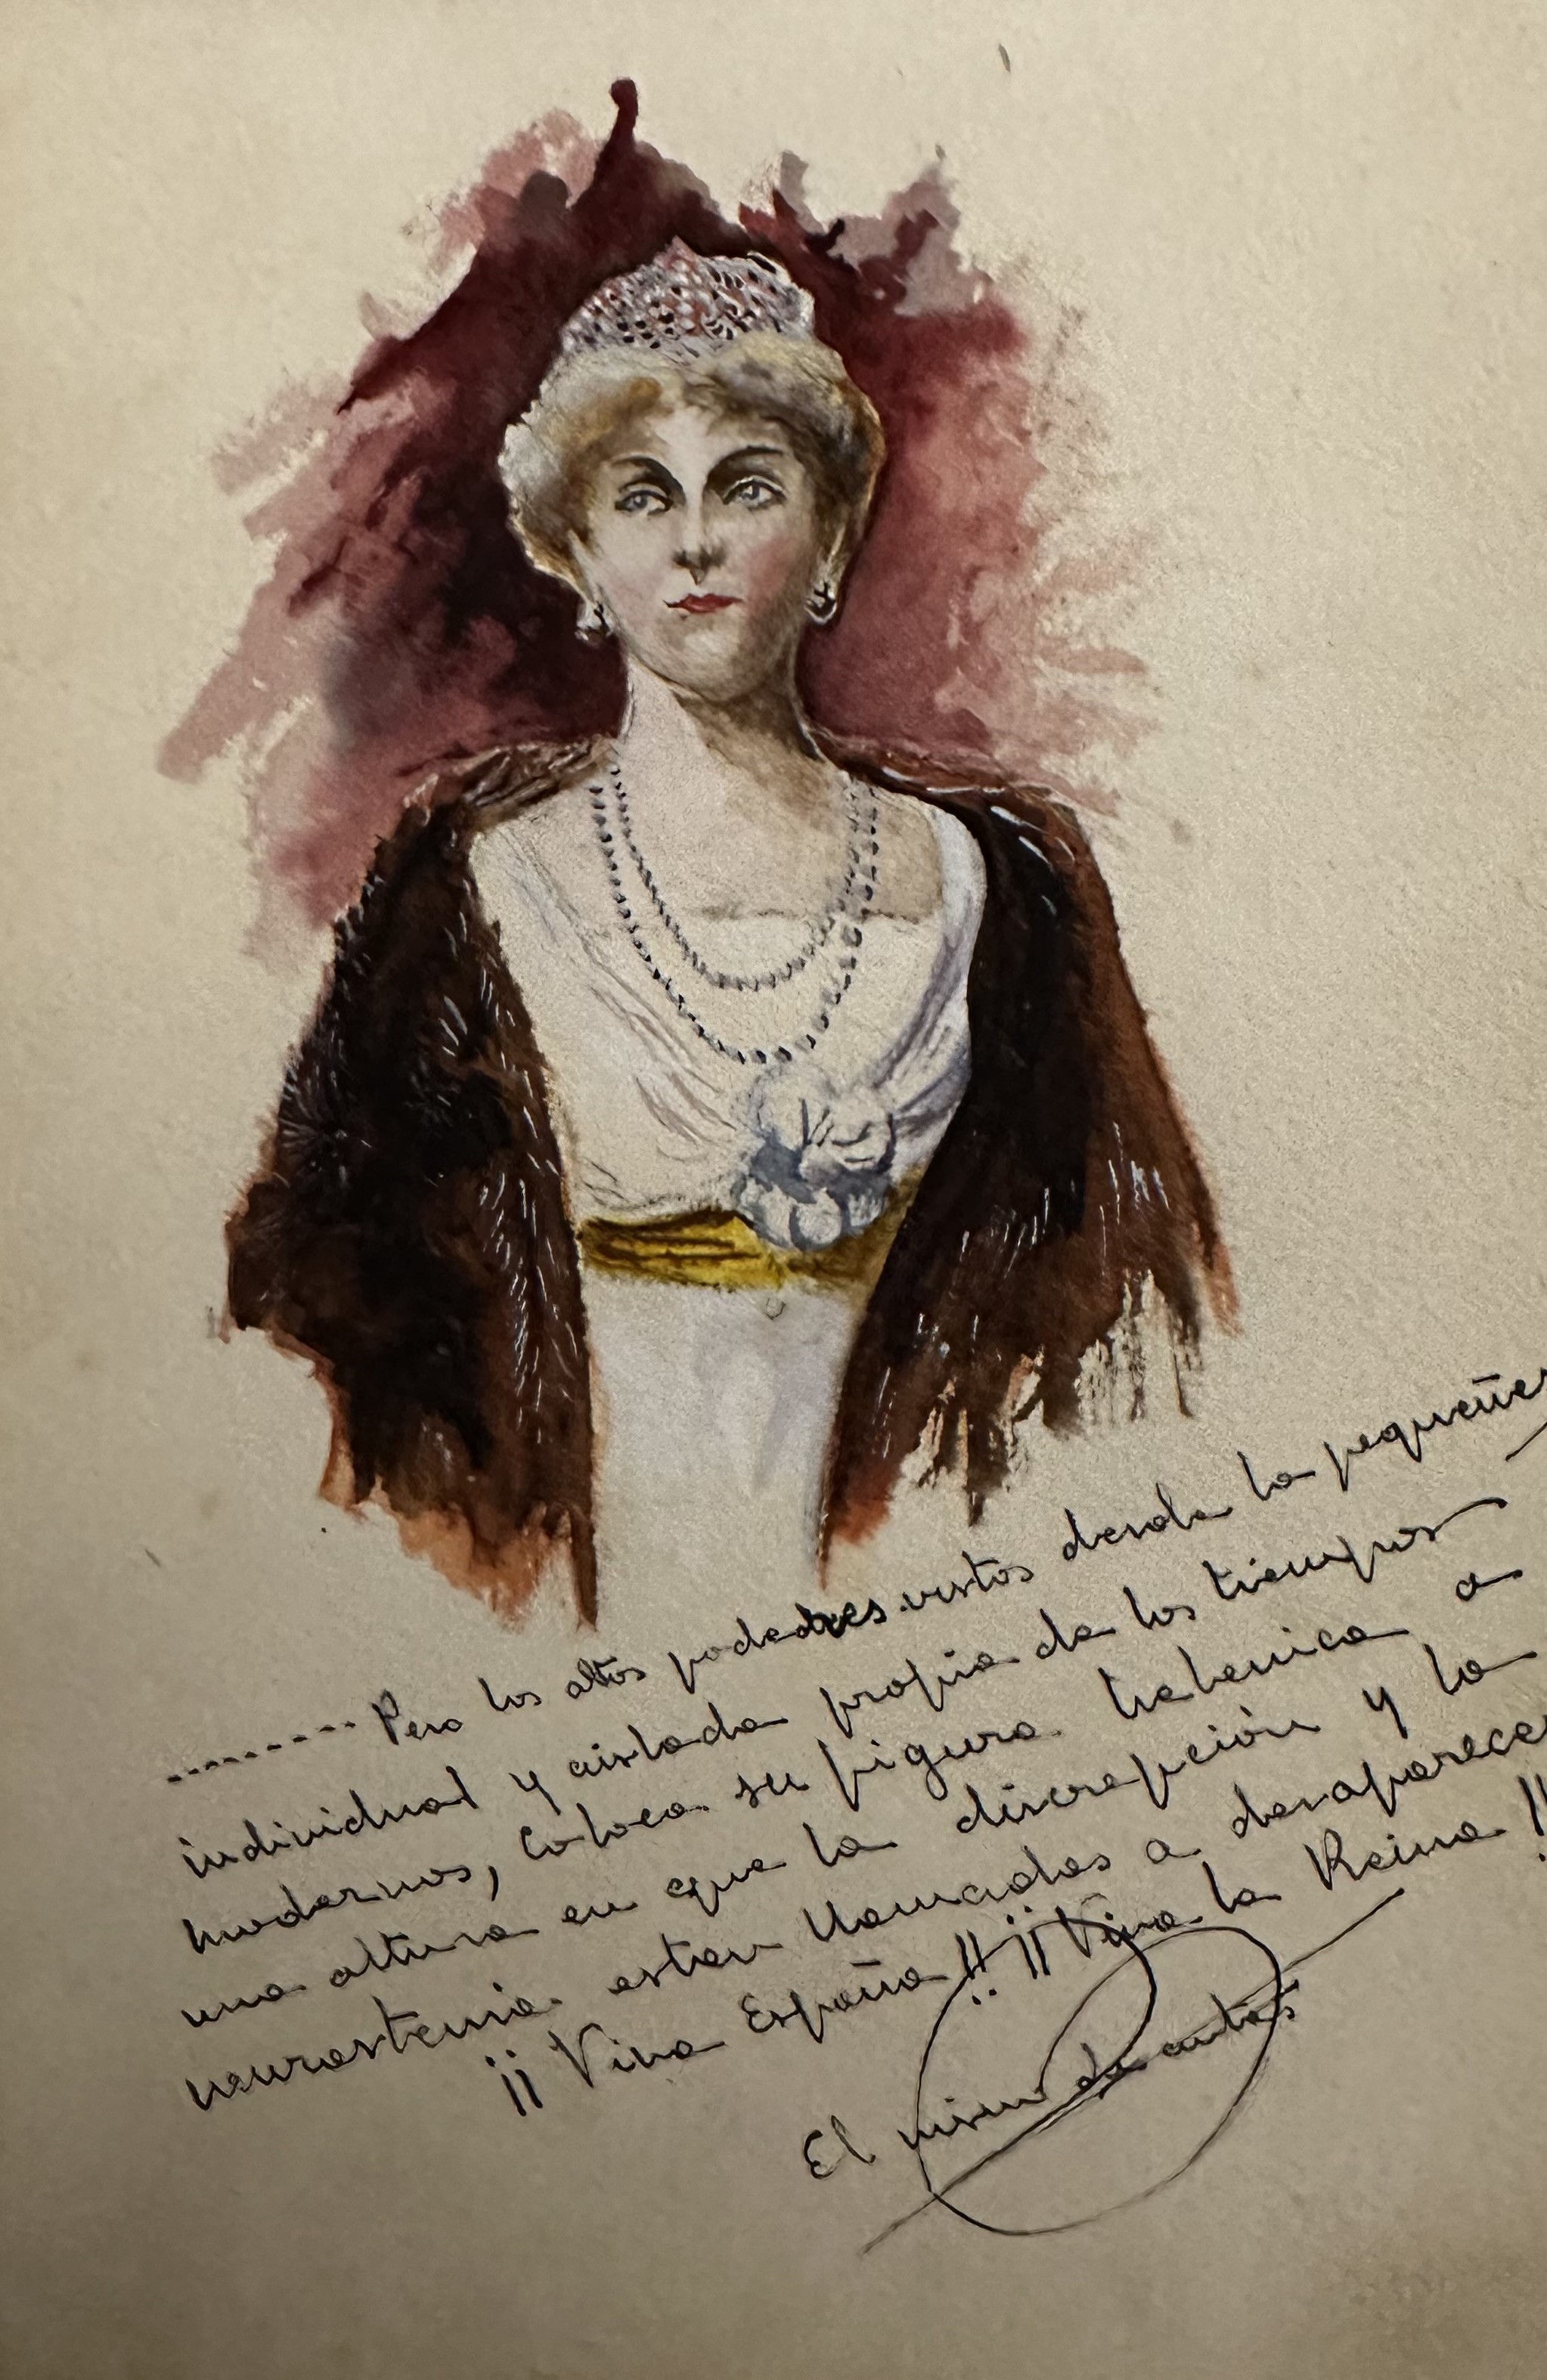 --------- Pero los altos poderes vistos desde la pequeñez
individual y aislada propia de los tiempos
modernos, coloca su figura helenica a
una altura en que la discrepción y la
neurastenia estan llamadas a desaparecer
¡¡Viva España!! ¡¡Viva la Reina!!
El mismo de antes